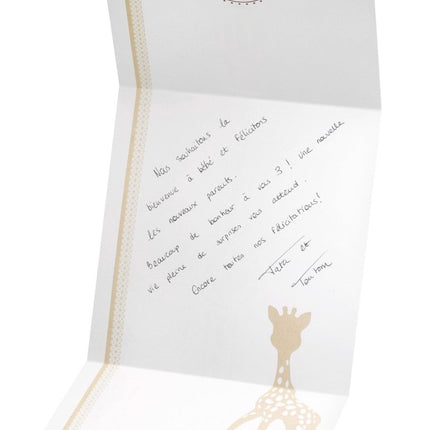 Nous souhaitons la
bienvenue à bébé et félicitons
les nouveaux parents.
Beaucoup de bonheur à vous 3 ! Une nouvelle
vie pleine de surprises vous attend.
Encore toutes nos félicitations !
Tata et
Tonton